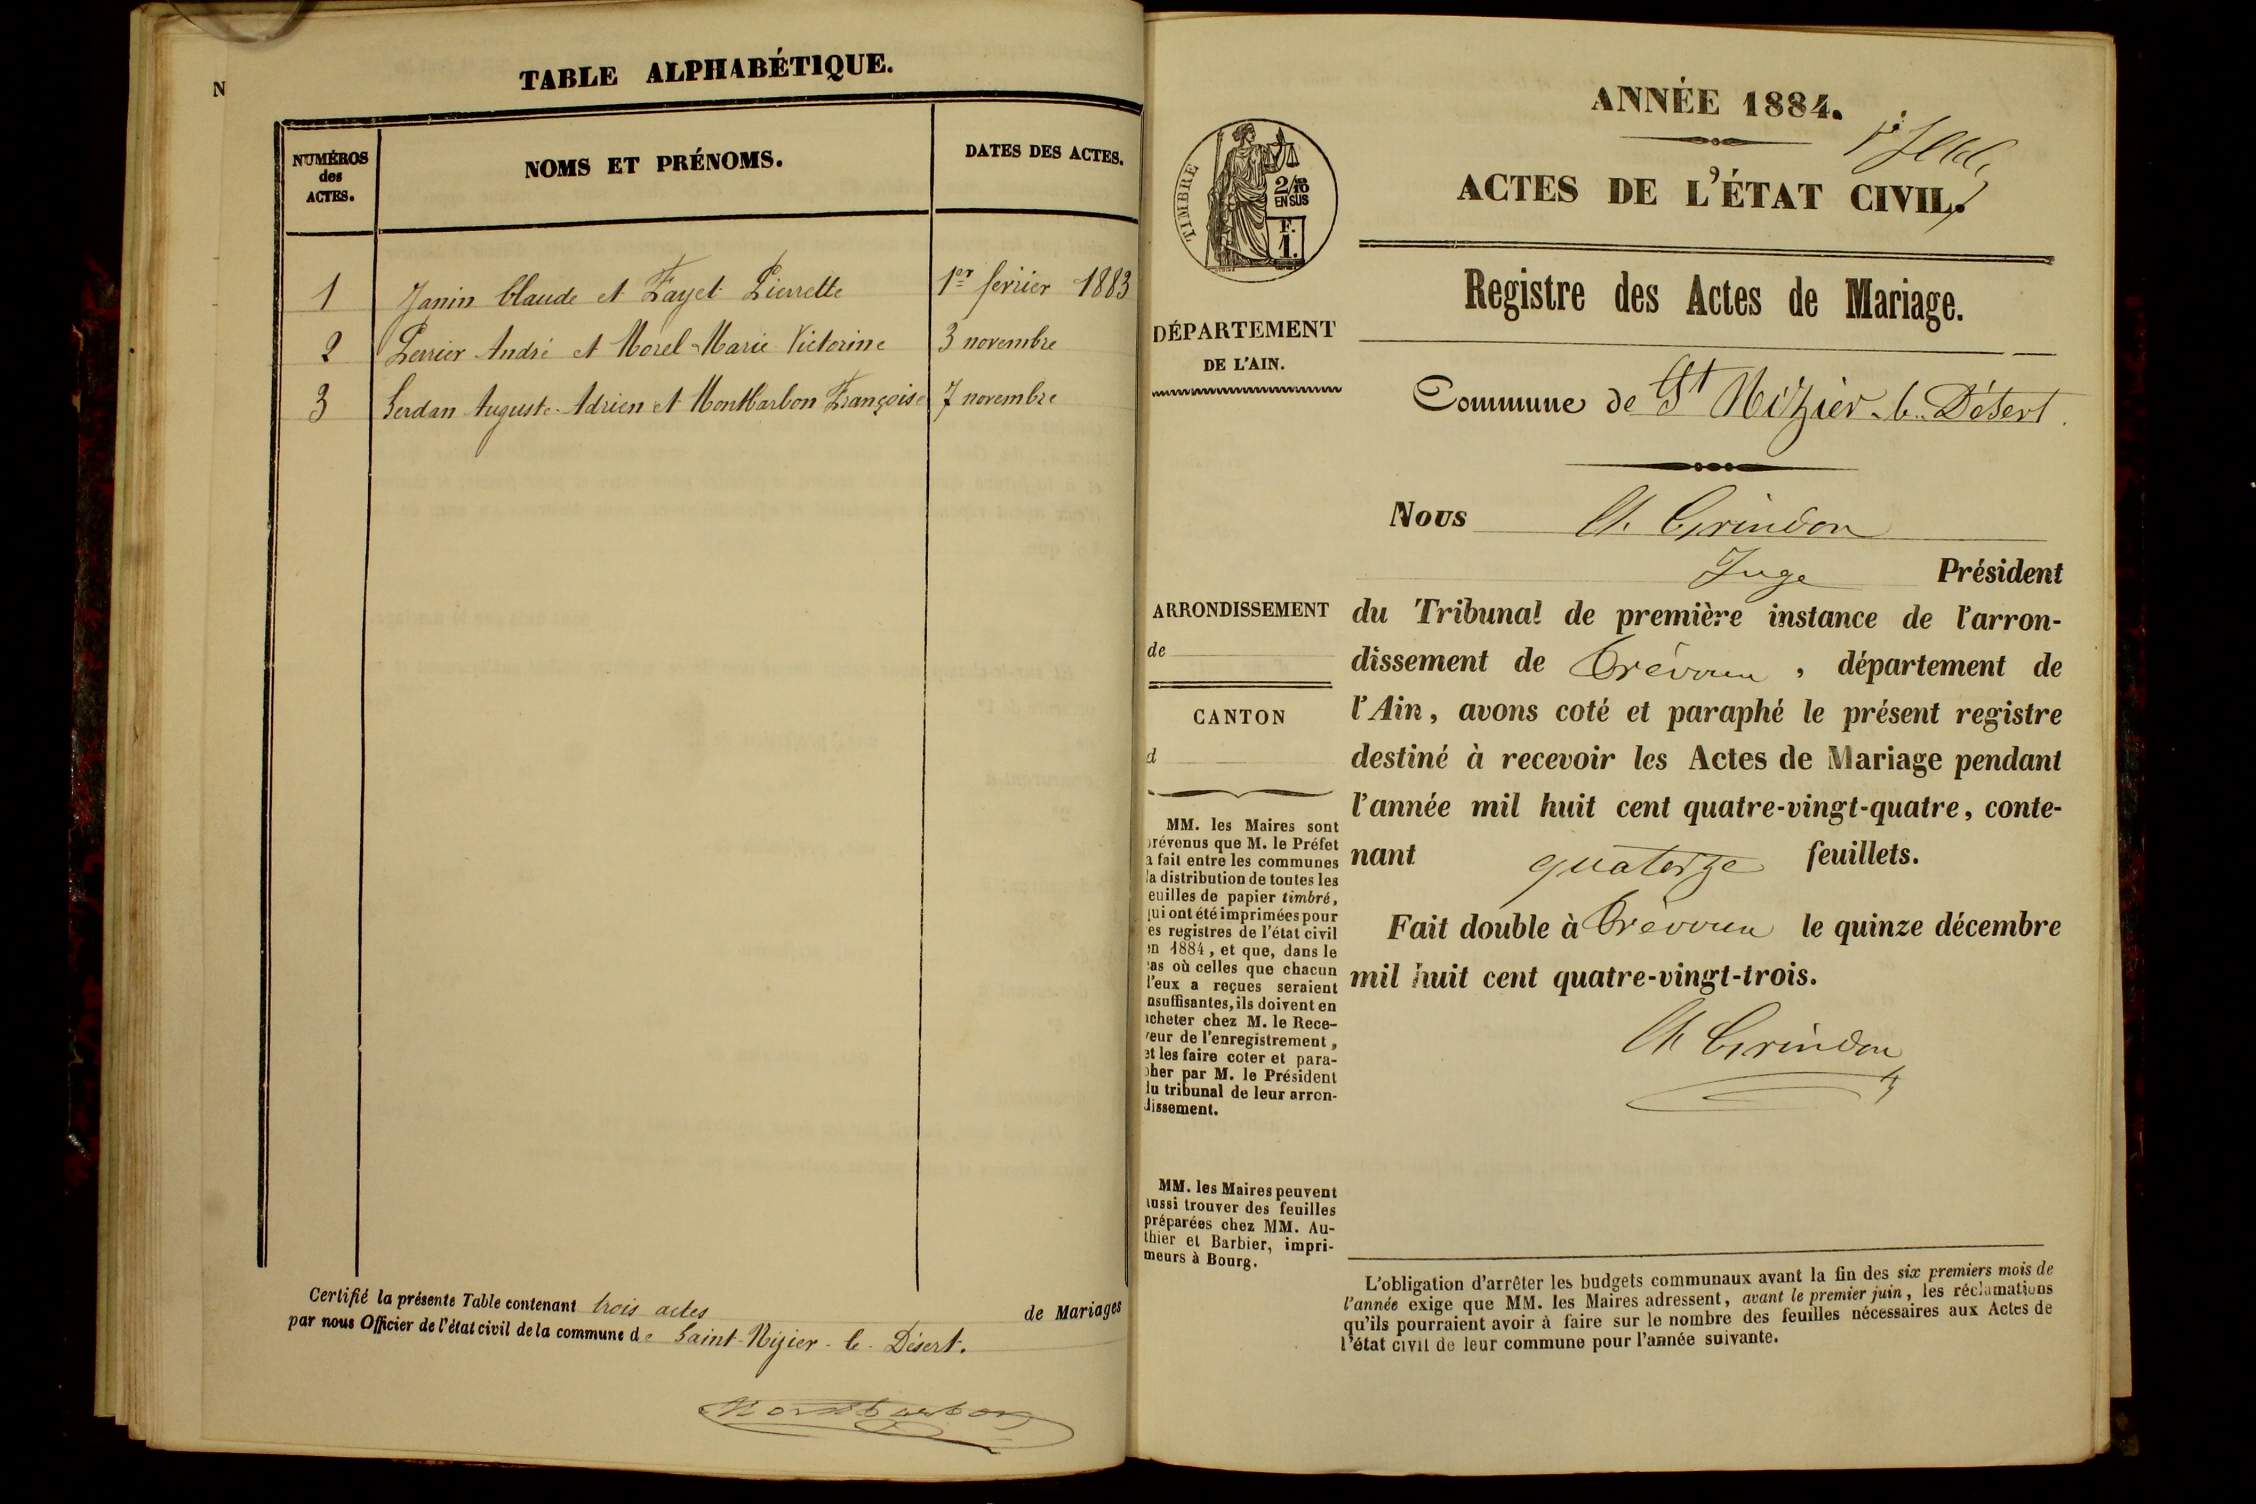 N
TABLE ALPHABÉTIQUE.
NUMÉROS des ACTES.
NOMS ET PRÉNOMS.
DATES DES ACTES.
1 Janin Claude et Fayet Pierrette 1er février 1883
2 Perrier André et Morel Marie Victorine 3 novembre
3 Serdan Auguste Adrien et Montbarbon Françoise 7 novembre
Certifié la présente Table contenant trois actes de Mariages
par nous Officier de l'état civil de la commune de Saint-Nizier-le-Désert.
Montbarbon
ANNÉE 1884.
ACTES DE L'ÉTAT CIVIL.
TIMBRE
2/10
EN SUS
F.
1.
Registre des Actes de Mariage.
DÉPARTEMENT
DE L'AIN.
Commune de St Nizier-le-Désert
Nous Ch Grindon
Juge Président
ARRONDISSEMENT
de
CANTON
d
du Tribunal de première instance de l'arron-
dissement de Trévoux, département de
l'Ain, avons coté et paraphé le présent registre
destiné à recevoir les Actes de Mariage pendant
l'année mil huit cent quatre-vingt-quatre, conte-
nant quatorze feuillets.
Fait double à Trévoux le quinze décembre
mil huit cent quatre-vingt-trois.
Ch Grindon
MM. les Maires sont
prévenus que M. le Préfet
a fait entre les communes
la distribution de toutes les
feuilles de papier timbré,
qui ont été imprimées pour
les registres de l'état civil
en 1884, et que, dans le
cas où celles que chacun
d'eux a reçues seraient
insuffisantes, ils doivent en
acheter chez M. le Rece-
veur de l'enregistrement,
et les faire coter et para-
pher par M. le Président
du tribunal de leur arron-
dissement.
MM. les Maires peuvent
aussi trouver des feuilles
préparées chez MM. Au-
thier et Barbier, impri-
meurs à Bourg.
L'obligation d'arrêter les budgets communaux avant la fin des six premiers mois de
l'année exige que MM. les Maires adressent, avant le premier juin, les réclamations
qu'ils pourraient avoir à faire sur le nombre des feuilles nécessaires aux Actes de
l'état civil de leur commune pour l'année suivante.